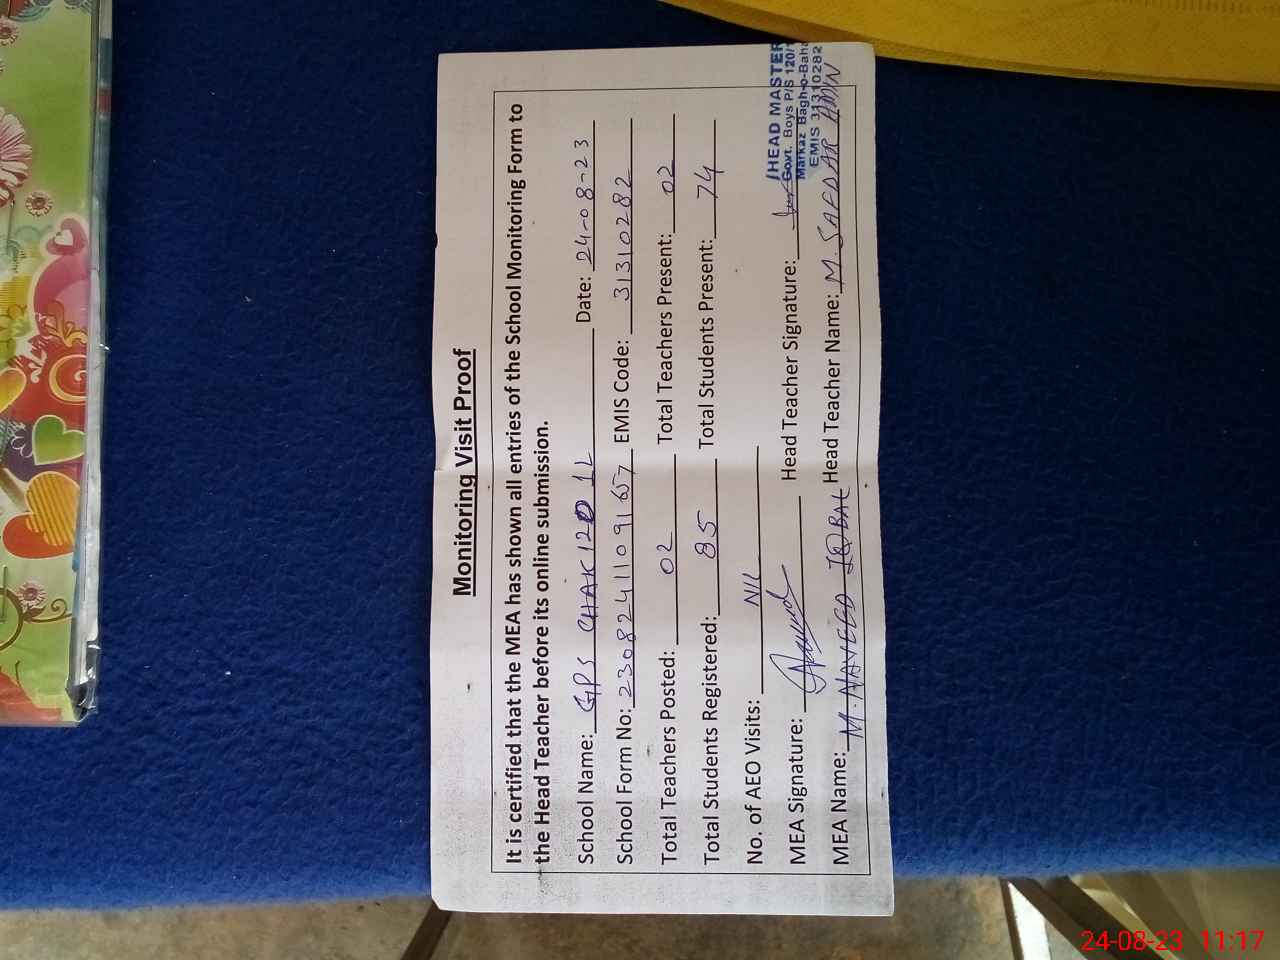 Monitoring Visit Proof
It is certified that the MEA has shown all entries of the School Monitoring Form to
the Head Teacher before its online submission.
School Name: GPS CHAK 120 1L Date: 24-08-23
School Form No: 2308241109167 EMIS Code: 31310282
Total Teachers Posted: 02 Total Teachers Present: 02
Total Students Registered: 85 Total Students Present: 74
No. of AEO Visits: NIL
MEA Signature: Head Teacher Signature:
MEA Name: M. NAVEED IQBAL Head Teacher Name: M. SAFDAR AMIN
HEAD MASTER
Govt. Boys P/S 120/
Markaz Bagh-o-Baha
EMIS 31310282
24-08-23 11:17